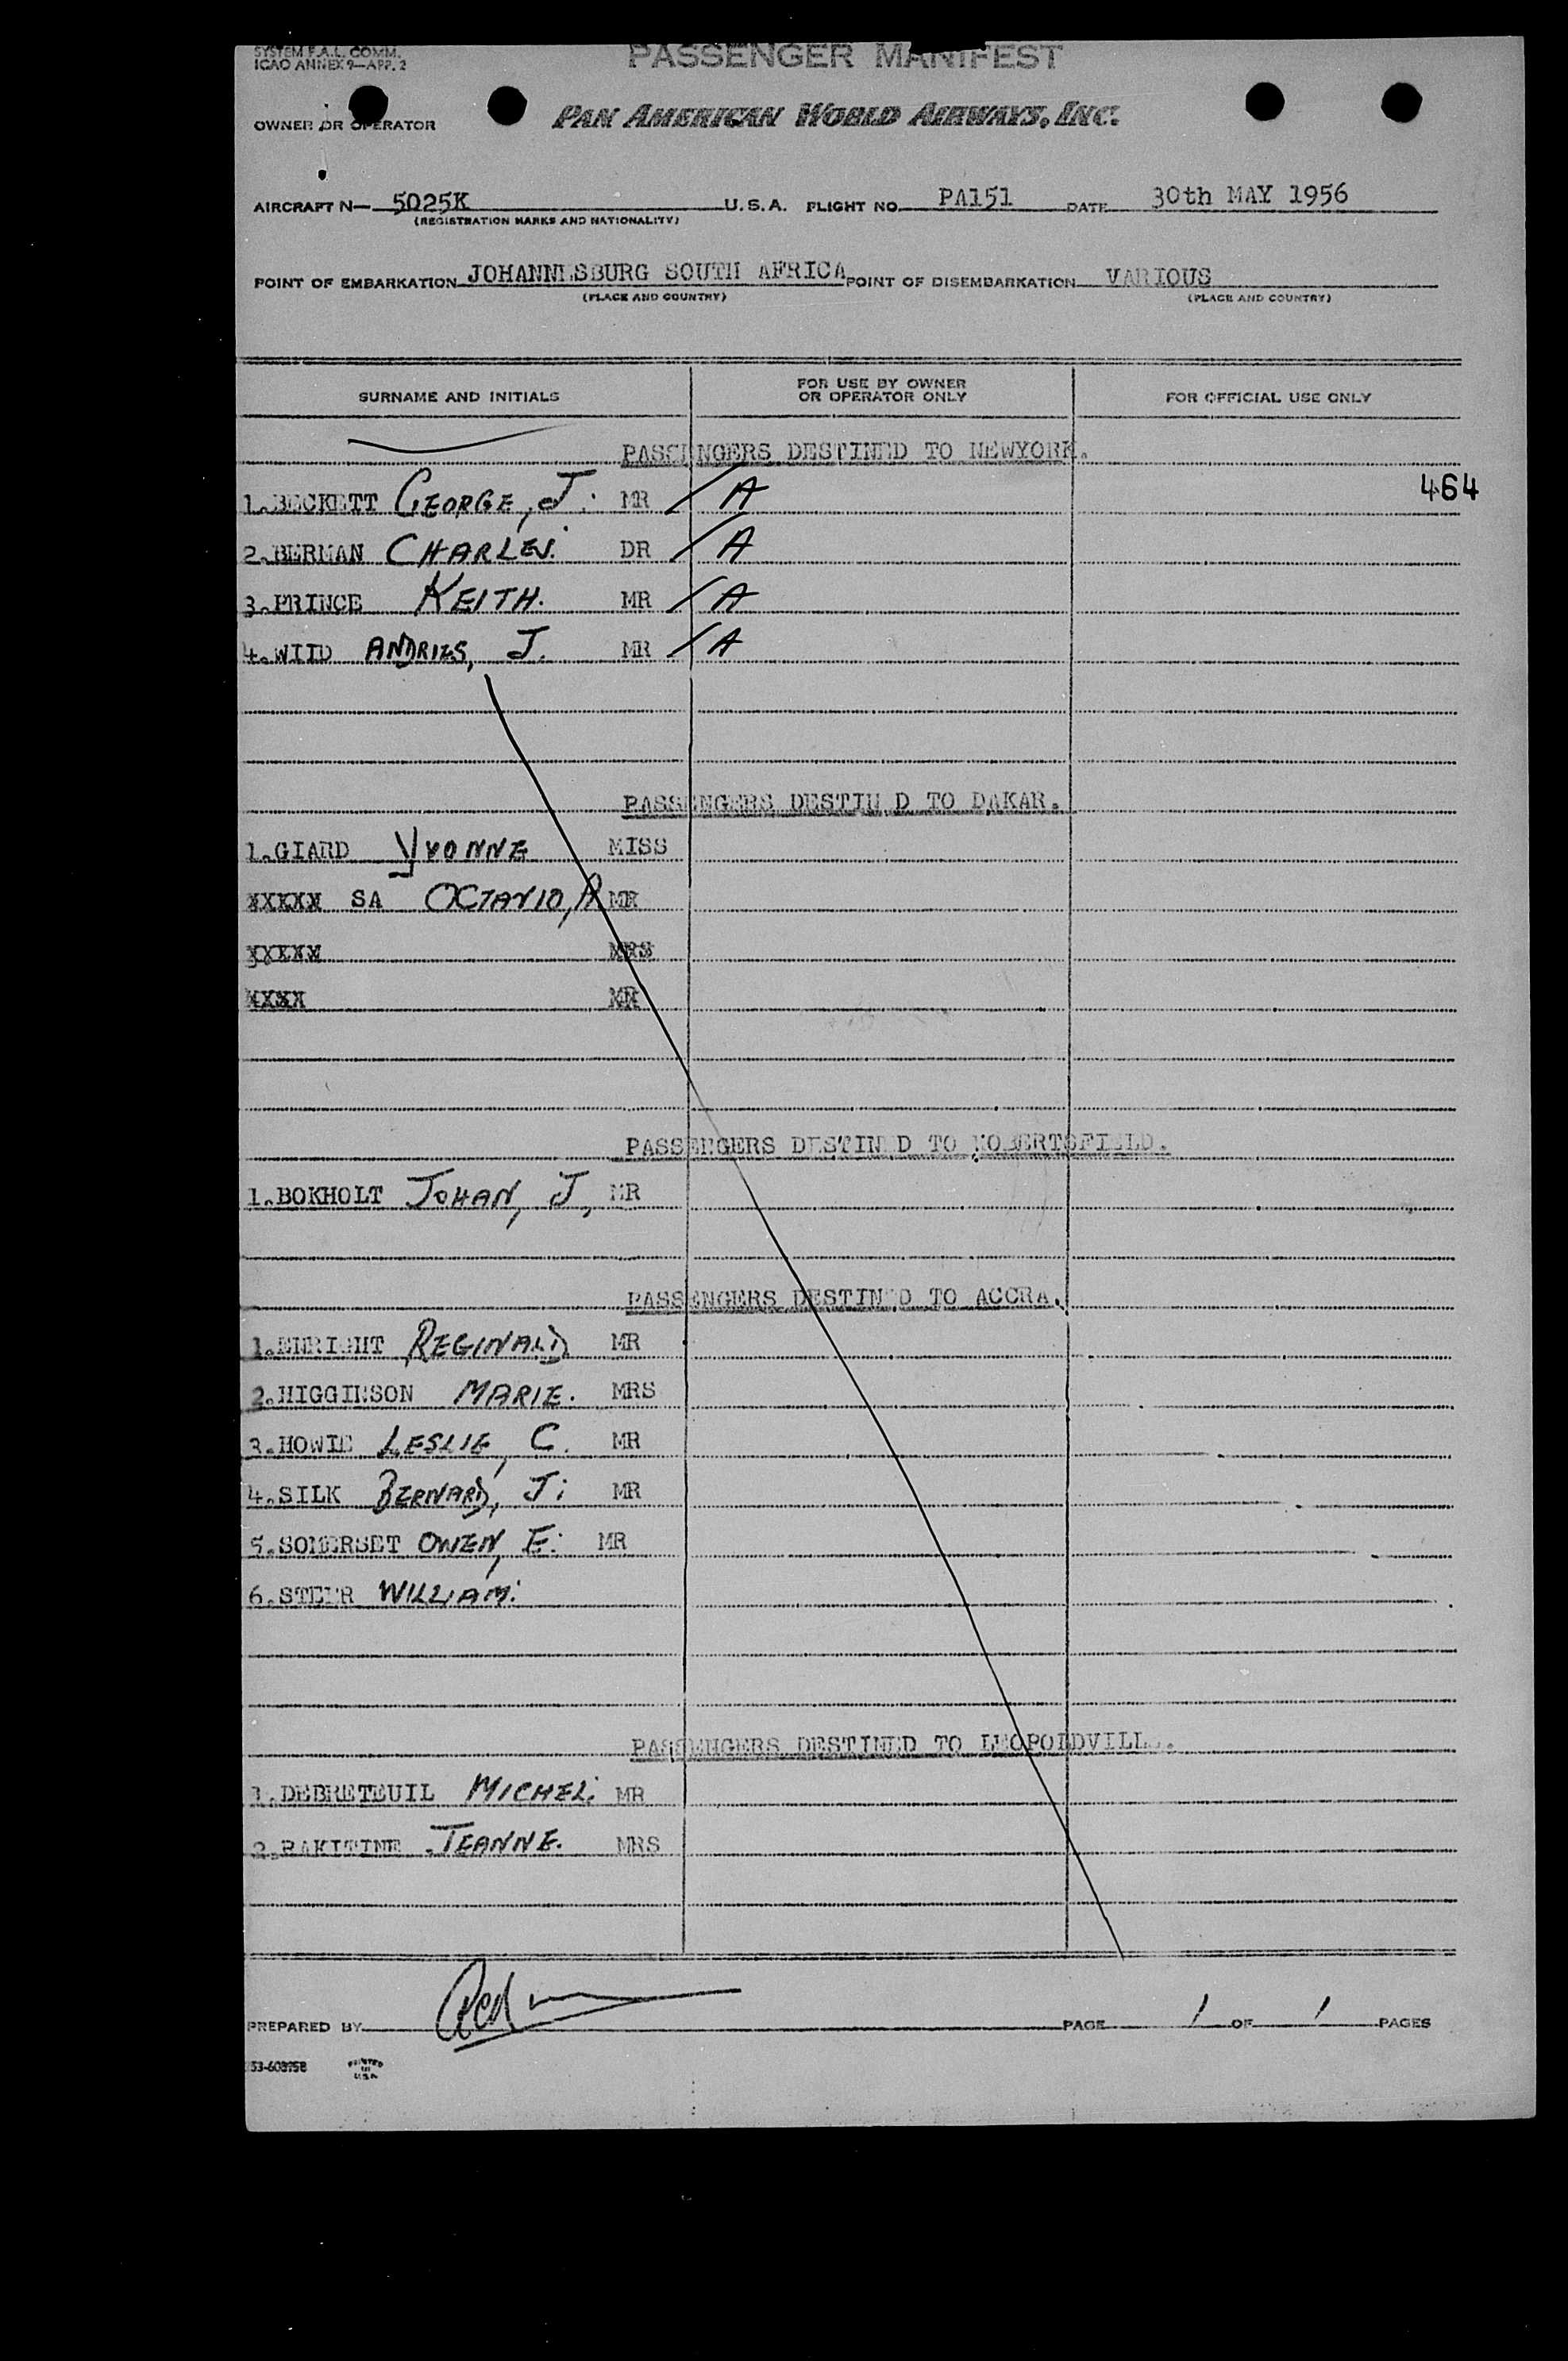 SYSTEM F.A.L. COMM.
ICAO ANNEX 9—APP. 2
PASSENGER MANIFEST
OWNER OR OPERATOR
PAN AMERICAN WORLD AIRWAYS, INC.
AIRCRAFT N— 5025K U.S.A. FLIGHT NO. PA151 DATE 30th MAY 1956
(REGISTRATION MARKS AND NATIONALITY)
POINT OF EMBARKATION JOHANNESBURG SOUTH AFRICA POINT OF DISEMBARKATION VARIOUS
(PLACE AND COUNTRY) (PLACE AND COUNTRY)
SURNAME AND INITIALS FOR USE BY OWNER OR OPERATOR ONLY FOR OFFICIAL USE ONLY
PASSENGERS DESTINED TO NEWYORK.
1.BECKETT GEORGE, J. MR / A 464
2.BERMAN CHARLES. DR / A
3.PRINCE KEITH. MR / A
4.WIID ANDRIES, J. MR / A
PASSENGERS DESTINED TO DAKAR.
1.GIARD YVONNE MISS
XXXXX SA OCTAVIO, A. MR
XXXXX MRS
XXXX MR
PASSENGERS DESTINED TO ROBERTSFIELD.
1.BOKHOLT JOHAN, J, MR
PASSENGERS DESTINED TO ACCRA.
1.ENRIGHT REGINALD MR
2.HIGGINSON MARIE. MRS
3.HOWIE LESLIE, C. MR
4.SILK BERNARD, J. MR
5.SOMERSET OWEN, E. MR
6.STEER WILLIAM.
PASSENGERS DESTINED TO LEOPOLDVILLE.
1.DEBRETEUIL MICHEL. MR
2.RAKITINE JEANNE. MRS
PREPARED BY PAGE 1 OF 1 PAGES
53-608958 PRINTED IN U.S.A.